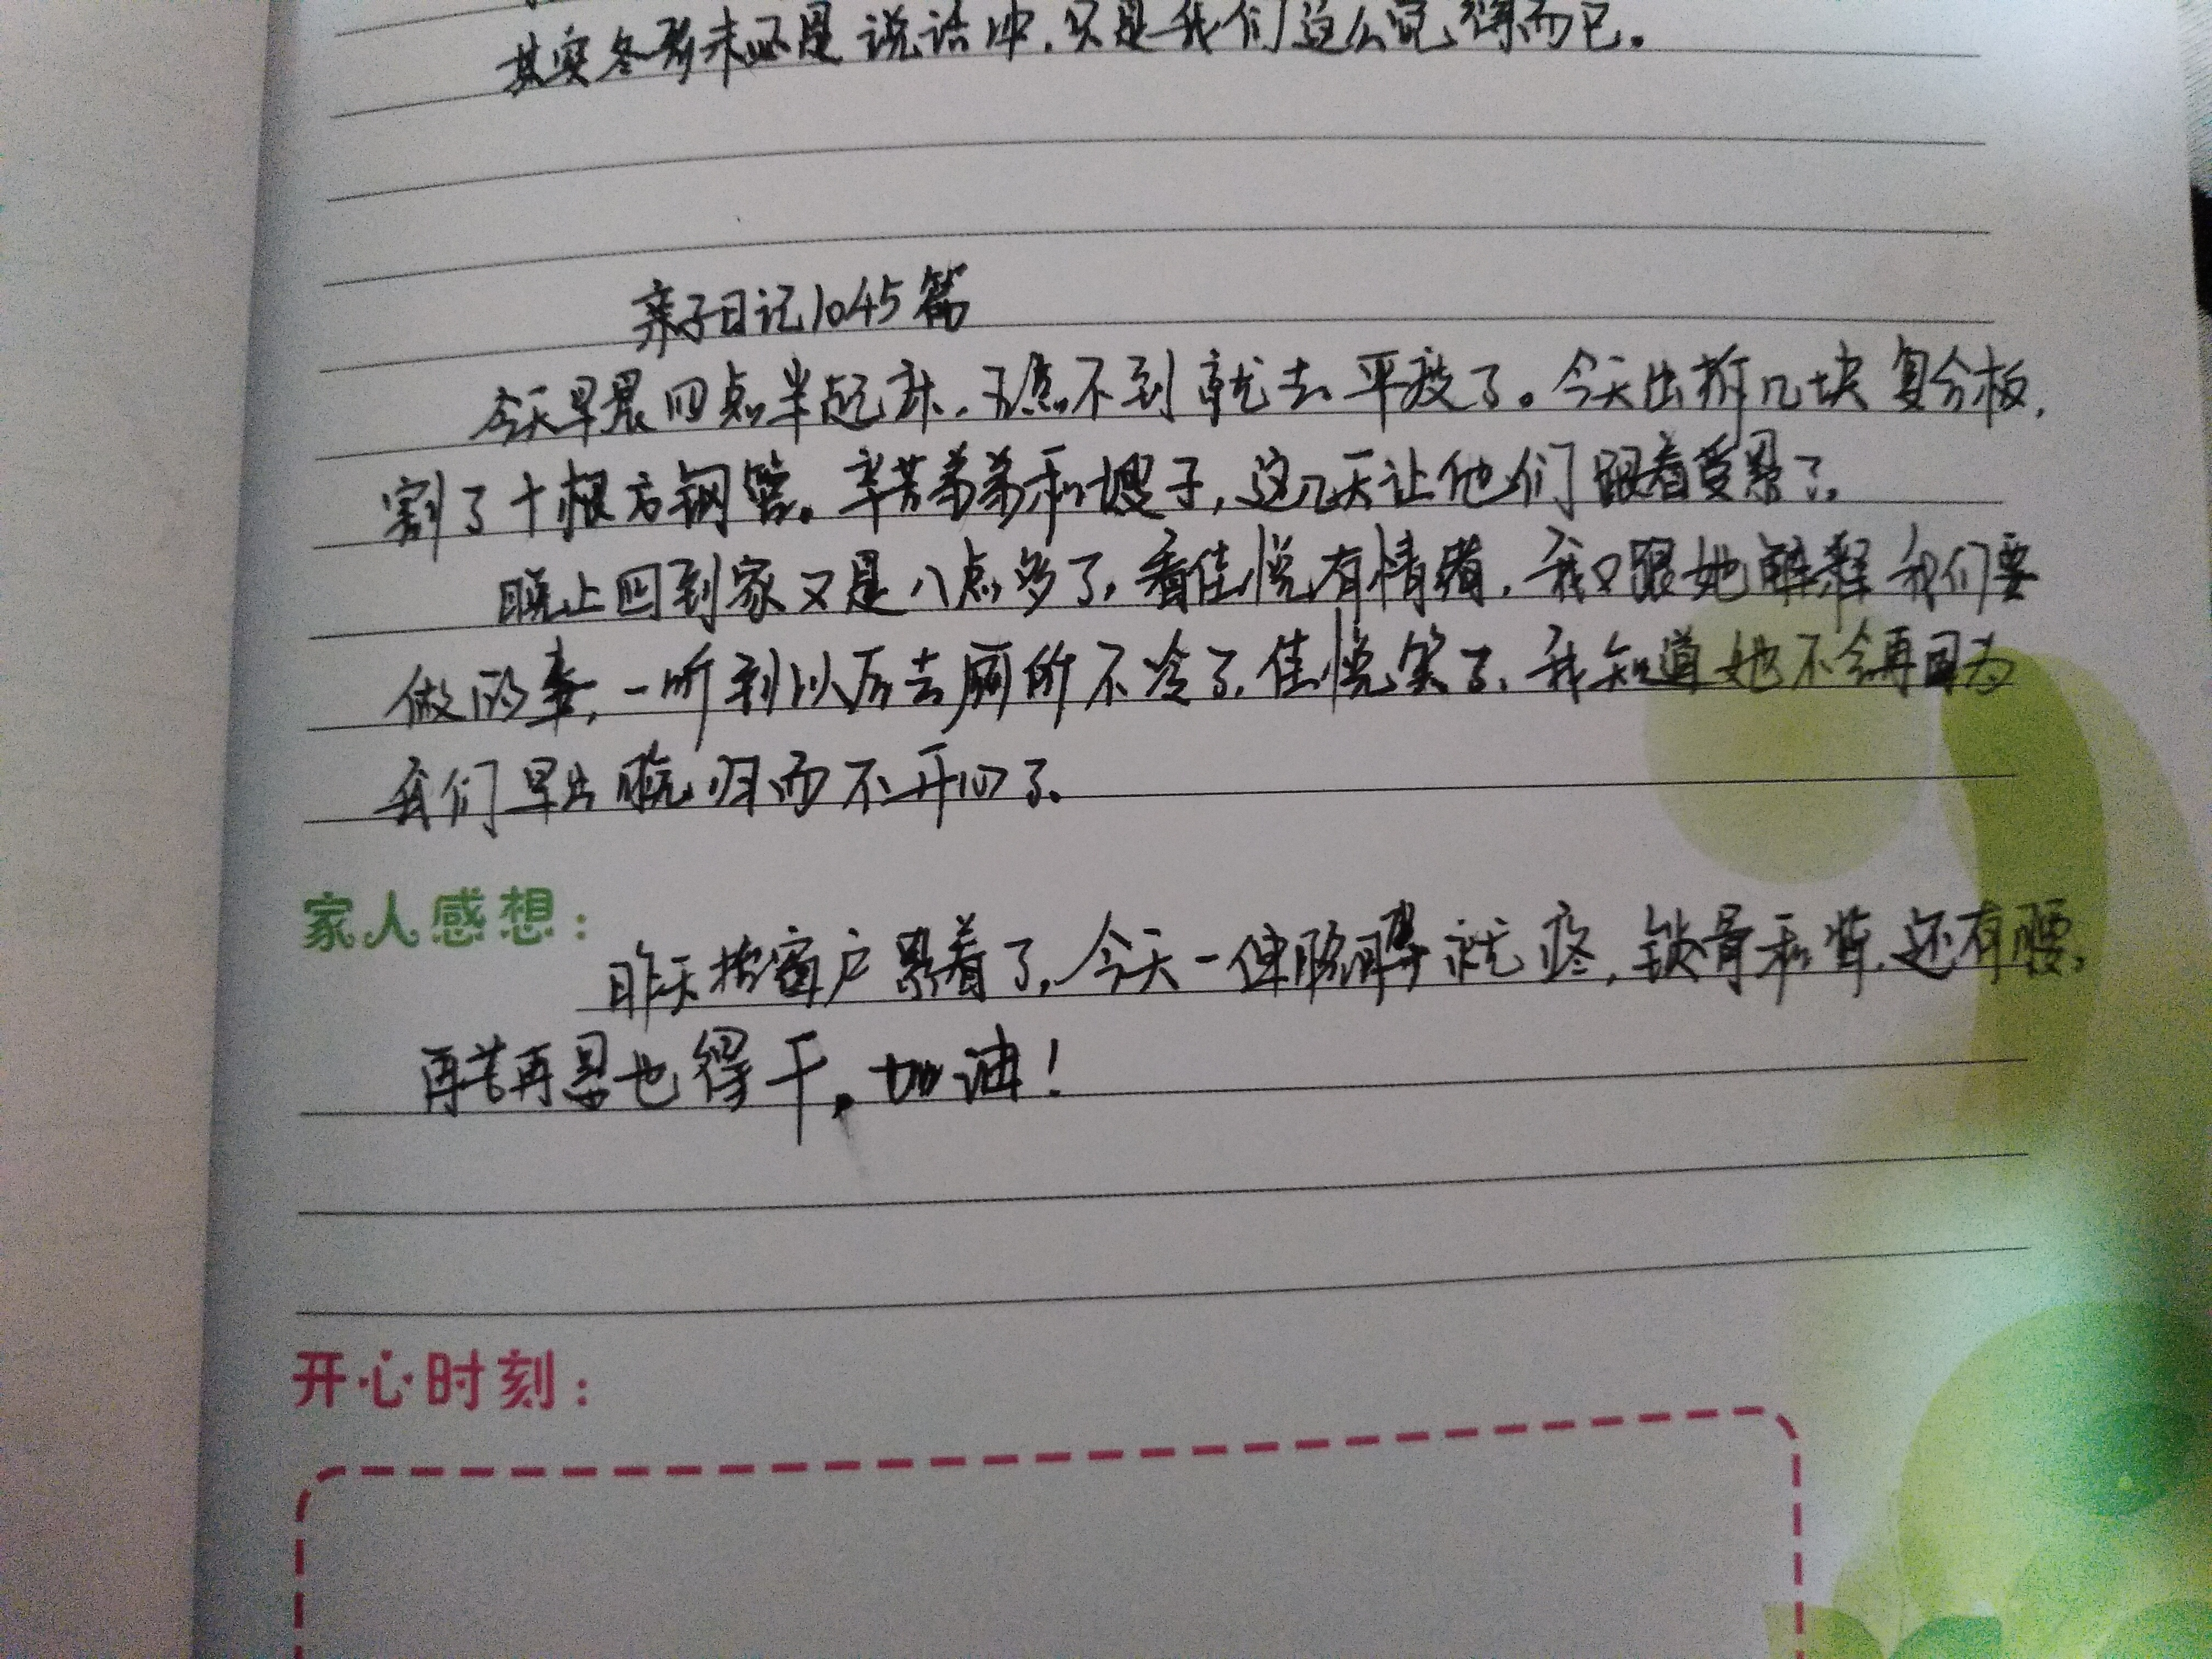 其实冬彦未必是说话冲，只是我们这么觉得而已。
亲子日记1045篇
今天早晨四点半起床，五点不到就去平疫了。今天出拆几块复合板，
割了十根方钢管。辛苦弟弟和嫂子，这几天让他们跟着受累了。
晚上回到家又是八点多了，看佳悦有情绪，我又跟她解释我们要
做的事，一听到以后去厕所不冷了，佳悦笑了，我知道她不会再因为
我们早出晚归而不开心了。
家人感想：
昨天按窗户累着了，今天一伸胳膊就疼，锁骨和背，还有腰，
再苦再累也得干。加油！
开心时刻：